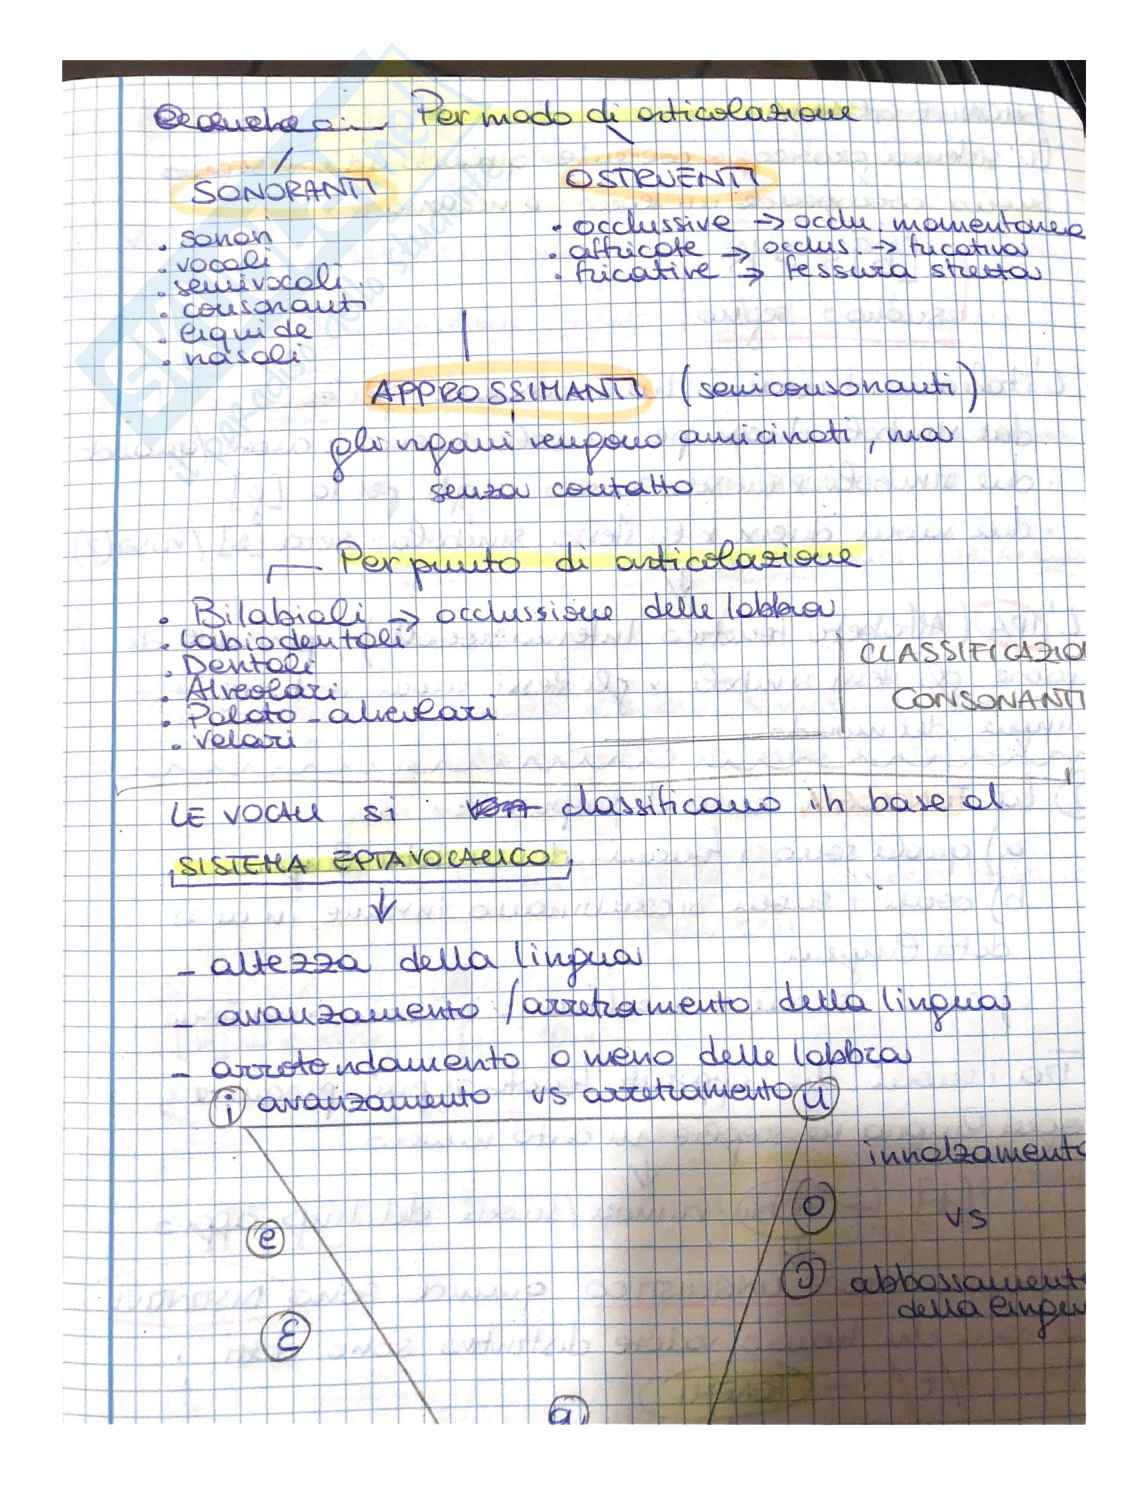 Per modo di articolazione
SONORANTI
OSTRUENTI
. sonori
. vocali
. semivocali
. consonanti
. liquide
. nasali
. occlussive → occlu. momentanea
. affricate → occlus. → fricativa
. fricative → fessura stretta
APPROSSIMANTI (semiconsonanti)
gli organi vengono avvicinati, ma
senza contatto
Per punto di articolazione
. Bilabiali → occlussione delle labbra
. Labiodentali
. Dentali
. Alveolari
. Palato-alveolari
. Velari
CLASSIFICAZIO
CONSONANTI
LE VOCALI si classificano in base al
SISTEMA EPTAVOCALICO
↓
- altezza della lingua
- avanzamento / arretramento della lingua
- arrotondamento o meno delle labbra
i avanzamento vs arretramento u
innalzamento
o vs
e
ɔ abbassament
della lingu
ɛ
a